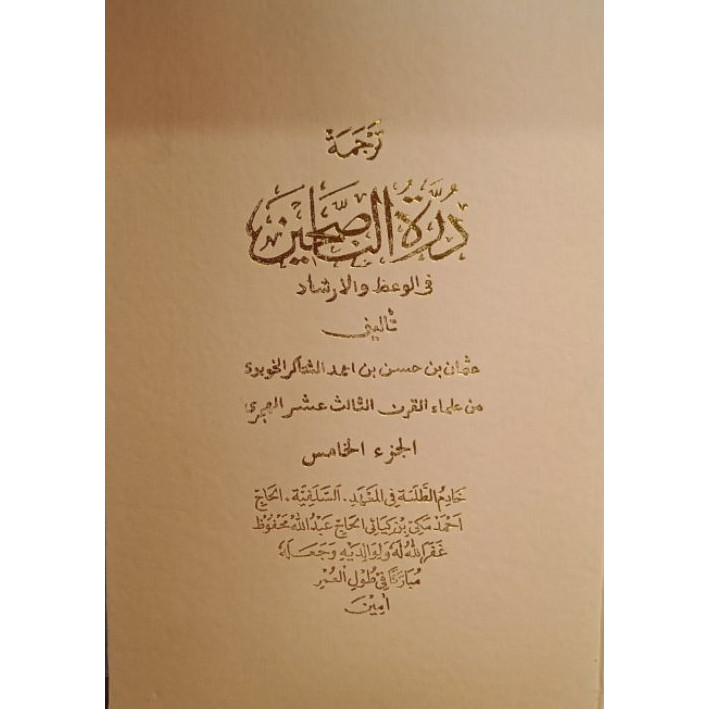 تَرْجَمَة
دُرَّةُ النَّاصِحِين
في الوعظ والارشاد
تأليف
عثمان بن حسن بن احمد الشاكر الخوبوي
من علماء القرن الثالث عشر الهجري
الجزء الخامس
خَادِمُ الطَّلَبَةِ فِي الْمَعْهَدِ . السَّلَفِيَّة . الحَاجّ
اَحْمَدْ مَكِّي بِنْ كِيَاهِي الحَاجّ عَبْدُ اللهْ مَحْفُوظْ
غَفَرَ اللهُ لَهُ وَلِوَالِدَيْهِ وَجَعَلَهُ
مُبَارَكًا فِي طُوْلِ الْعُمْرِ
اٰمِيْنَ